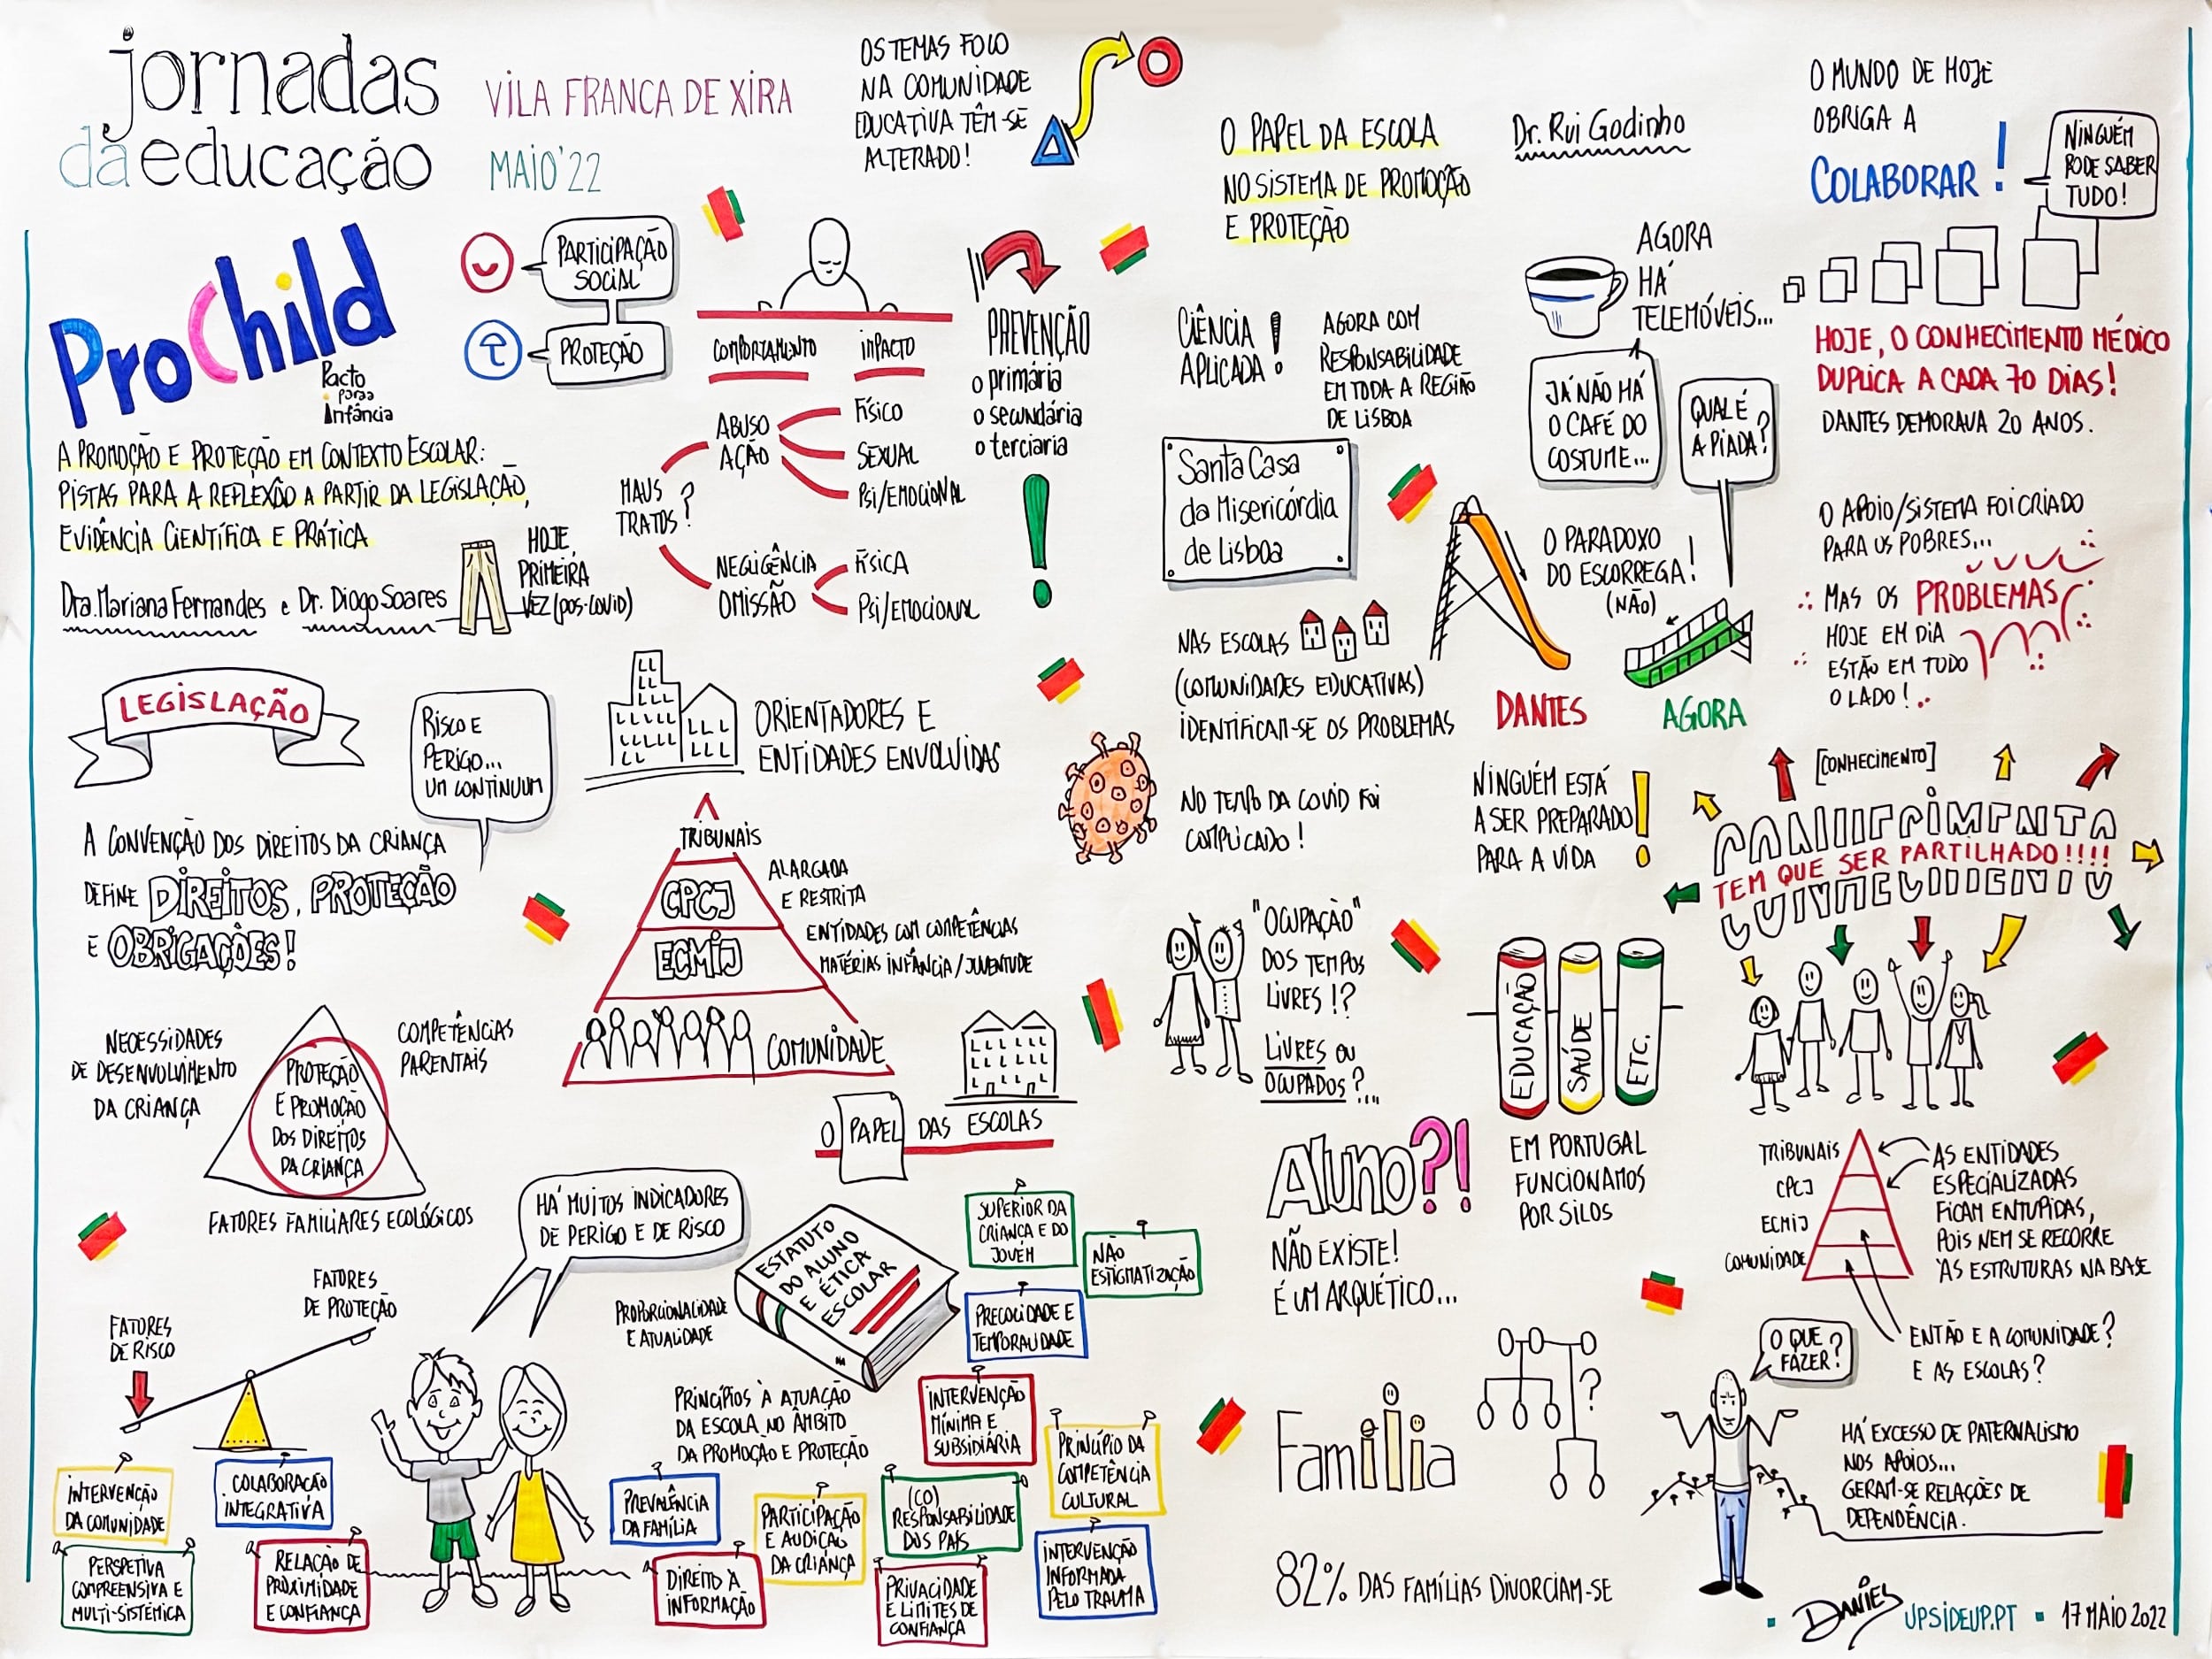 jornadas
da educação
VILA FRANCA DE XIRA
MAIO'22
OS TEMAS FOLO
NA COMUNIDADE
EDUCATIVA TÊM-SE
ALTERADO!
ProChild
Pacto
para a
infância
A PROMOÇÃO E PROTEÇÃO EM CONTEXTO ESCOLAR:
PISTAS PARA A REFLEXÕO A PARTIR DA LEGISLAÇÃO,
EVIDÊNCIA CIENTÍFICA E PRÁTICA
Dra. Mariana Fernandes e Dr. Diogo Soares
HOJE,
PRIMEIRA
VEZ (POS-COVID)
PARTICIPAÇÃO
SOCIAL
PROTEÇÃO
COMPORTAMENTO
IMPACTO
MAUS
TRATOS?
ABUSO
AÇÃO
FÍSICO
SEXUAL
PSI/EMOCIONAL
NEGLIGÊNCIA
OMISSÃO
FÍSICA
PSI/EMOCIONAL
PREVENÇÃO
o primária
o secundária
o terciaria
!
LEGISLAÇÃO
RISCO E
PERIGO...
UM CONTINUUM
A CONVENÇÃO DOS DIREITOS DA CRIANÇA
DEFINE DIREITOS, PROTEÇÃO
E OBRIGAÇÕES!
ORIENTADORES E
ENTIDADES ENVOLVIDAS
TRIBUNAIS
CPCJ
ALARGADA
E RESTRITA
ECMIJ
ENTIDADES COM COMPETÊNCIAS
MATÉRIAS INFÂNCIA/JUVENTUDE
COMUNIDADE
NECESSIDADES
DE DESENVOLVIMENTO
DA CRIANÇA
PROTEÇÃO
E PROMOÇÃO
DOS DIREITOS
DA CRIANÇA
COMPETÊNCIAS
PARENTAIS
FATORES FAMILIARES ECOLÓGICOS
O PAPEL DAS ESCOLAS
HÁ MUITOS INDICADORES
DE PERIGO E DE RISCO
FATORES
DE RISCO
FATORES
DE PROTEÇÃO
PROPORCIONALIDADE
E ATUALIDADE
ESTATUTO
DO ALUNO
E ÉTICA
ESCOLAR
PRINCÍPIOS À ATUAÇÃO
DA ESCOLA NO ÂMBITO
DA PROMOÇÃO E PROTEÇÃO
SUPERIOR DA
CRIANÇA E DO
JOVEM
NÃO
ESTIGMATIZAÇÃO
PRECOCIDADE E
TEMPORALIDADE
INTERVENÇÃO
MÍNIMA E
SUBSIDIÁRIA
PRINCÍPIO DA
COMPETÊNCIA
CULTURAL
INTERVENÇÃO
DA COMUNIDADE
COLABORAÇÃO
INTEGRATIVA
PERSPETIVA
COMPREENSIVA E
MULTI-SISTÉMICA
RELAÇÃO DE
PROXIMIDADE
E CONFIANÇA
PREVALÊNCIA
DA FAMÍLIA
PARTICIPAÇÃO
E AUDIÇÃO
DA CRIANÇA
(CO)
RESPONSABILIDADE
DOS PAIS
DIREITO À
INFORMAÇÃO
PRIVACIDADE
E LIMITES DE
CONFIANÇA
INTERVENÇÃO
INFORMADA
PELO TRAUMA
O PAPEL DA ESCOLA
NO SISTEMA DE PROMOÇÃO
E PROTEÇÃO
Dr. Rui Godinho
CIÊNCIA
APLICADA!
AGORA COM
RESPONSABILIDADE
EM TODA A REGIÃO
DE LISBOA
Santa Casa
da Misericórdia
de Lisboa
AGORA
HÁ
TELEMÓVEIS...
JÁ NÃO HÁ
O CAFÉ DO
COSTUME...
QUAL É
A PIADA?
O PARADOXO
DO ESCORREGA!
(NÃO)
DANTES
AGORA
NAS ESCOLAS
(COMUNIDADES EDUCATIVAS)
IDENTIFICAM-SE OS PROBLEMAS
NO TEMPO DA COVID FOI
COMPLICADO!
NINGUÉM ESTÁ
A SER PREPARADO
PARA A VIDA
!
"OCUPAÇÃO"
DOS TEMPOS
LIVRES!?
LIVRES OU
OCUPADOS?...
EDUCAÇÃO
SAÚDE
ETC.
EM PORTUGAL
FUNCIONAMOS
POR SILOS
Aluno?!
NÃO EXISTE!
É UM ARQUÉTICO...
Família
?
82% DAS FAMÍLIAS DIVORCIAM-SE
O MUNDO DE HOJE
OBRIGA A
COLABORAR!
NINGUÉM
PODE SABER
TUDO!
HOJE, O CONHECIMENTO MÉDICO
DUPLICA A CADA 70 DIAS!
DANTES DEMORAVA 20 ANOS.
O APOIO/SISTEMA FOI CRIADO
PARA OS POBRES...
MAS OS PROBLEMAS
HOJE EM DIA
ESTÃO EM TODO
O LADO!
[CONHECIMENTO]
TEM QUE SER PARTILHADO!!!!
TRIBUNAIS
CPCJ
ECMIJ
COMUNIDADE
AS ENTIDADES
ESPECIALIZADAS
FICAM ENTUPIDAS,
POIS NEM SE RECORRE
ÀS ESTRUTURAS NA BASE
ENTÃO E A COMUNIDADE?
E AS ESCOLAS?
O QUE
FAZER?
HÁ EXCESSO DE PATERNALISMO
NOS APOIOS...
GERAM-SE RELAÇÕES DE
DEPENDÊNCIA.
DANIEL UPSIDEUP.PT 17 MAIO 2022